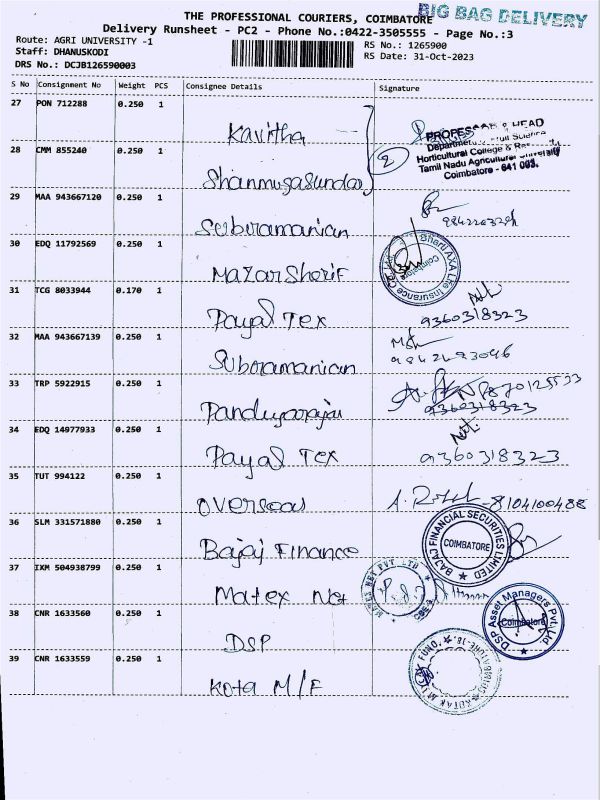 BIG BAG DELIVERY
THE PROFESSIONAL COURIERS, COIMBATORE
Delivery Runsheet - PC2 - Phone No.:0422-3505555 - Page No.:3
Route: AGRI UNIVERSITY -1
RS No.: 1265900
Staff: DHANUSKODI
RS Date: 31-Oct-2023
DRS No.: DCJB126590003
S No Consignment No Weight PCS Consignee Details Signature
27 PON 712288 0.250 1 Kavitha
PROFESSOR & HEAD
Horticultural College &
Tamil Nadu Agricultural University
Coimbatore - 641 003.
28 CMM 855240 0.250 1 Shanmugasundar 2
29 MAA 943667120 0.250 1 Subiramanian
30 EDQ 11792569 0.250 1 Mazar Sherif
Bharti AXA Life Insurance Co
Coimbatore
31 TCG 8033944 0.170 1 Payal Tex 9360318323
32 MAA 943667139 0.250 1 Subiramanian
33 TRP 5922915 0.250 1 Panduyarajai 9360318323
34 EDQ 14977933 0.250 1 Payal Tex 9360318323
35 TUT 994122 0.250 1 Overseas 8104100488
36 SLM 331571880 0.250 1 Bajaj Finance
BAJAJ FINANCIAL SECURITIES LIMITED
COIMBATORE
37 IXM 504938799 0.250 1 Matex Net
NET PVT LTD
38 CNR 1633560 0.250 1 DSP
DSP Asset Managers Pvt. Ltd.
Coimbatore
39 CNR 1633559 0.250 1 Kota M/F
FUND
COIMBATORE-18